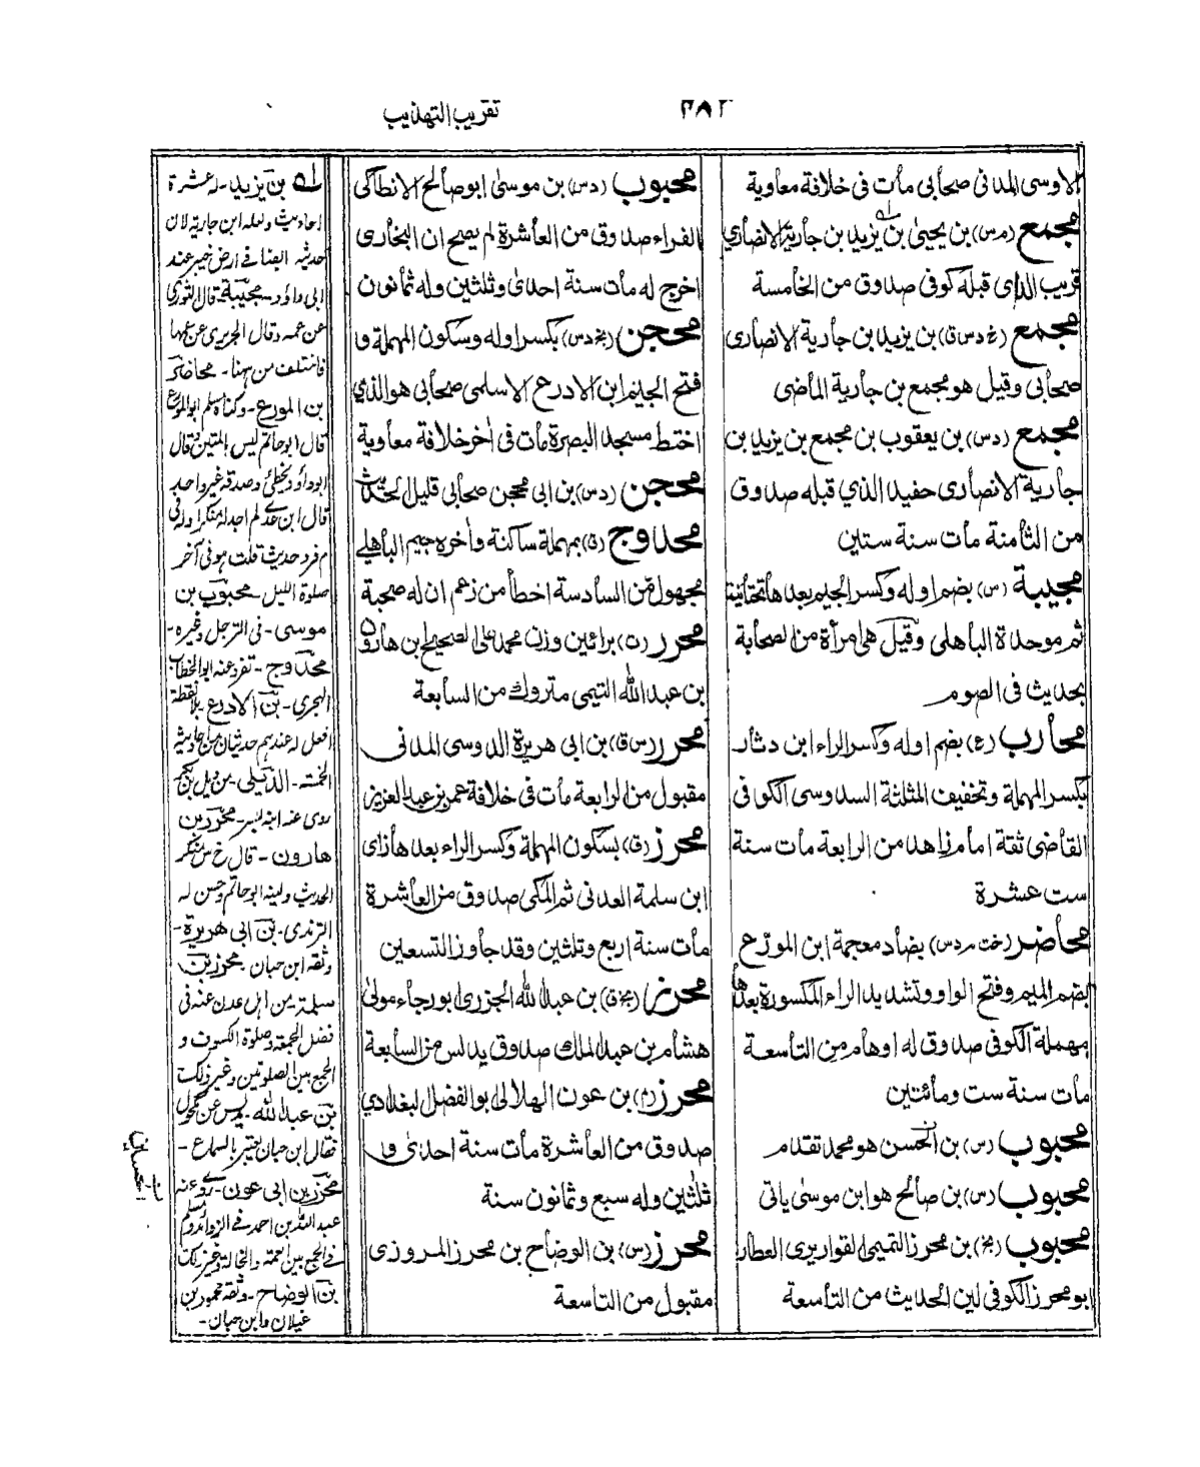 تقريب التهذيب
٣٨٢
الاوسى المدنى صحابى مات فى خلافة معاوية
مجمع (م س) بن يحيىٰ بن يزيد بن جارية الانصاري
قريب الذى قبله كوفى صدوق من الخامسة
مجمع (خ د س ق) بن يزيد بن جارية الانصارى
صحابى وقيل هو مجمع بن جارية الماضى
مجمع (د س) بن يعقوب بن مجمع بن يزيد بن
جارية الانصارى حفيد الذي قبله صدوق
من الثامنة مات سنة ستين
مجيبة (س) بضم اوله وكسر الجيم بعدها تحتانية
ثم موحدة الباهلى وقيل هى امرأة من الصحابة
بحديث فى الصوم
محارب (ع) بضم اوله وكسر الراء ابن دثار
بكسر المهملة وتخفيف المثلثة السدوسى الكوفى
القاضى ثقة امام زاهد من الرابعة مات سنة
ست عشرة
محاضر (خت م د س) بضاد معجمة ابن المورّع
بضم الميم وفتح الواو وتشديد الراء المكسورة بعدها
مهملة الكوفى صدوق له اوهام من التاسعة
مات سنة ست ومائتين
محبوب (س) بن الحسن هو محمد تقدم
محبوب (س) بن صالح هو ابن موسىٰ ياتى
محبوب (بخ) بن محرز التميمى القواريرى العطار
ابو محرز الكوفى لين الحديث من التاسعة
محبوب (د س) بن موسىٰ ابو صالح الانطاكى
الفراء صدوق من العاشرة لم يصح ان البخارى
اخرج له مات سنة احدىٰ وثلثين وله ثمانون
محجن (بخ د س) بكسر اوله وسكون المهملة و
فتح الجيم ابن الادرع الاسلمى صحابى هو الذي
اختط مسجد البصرة مات فى اٰخر خلافة معاوية
محجن (د س) بن ابى محجن صحابى قليل الحديث
محدوج (ق) بمهملة ساكنة واٰخره جيم الباهلي
مجهول من السادسة اخطأ من زعم ان له صحبة
محرر (ت) برائين وزن محمد على الصحيح بن هارون
بن عبد الله التيمى متروك من السابعة
محرر (س ق) بن ابى هريرة الدوسى المدنى
مقبول من الرابعة مات فى خلافة عمر بن عبد العزيز
محرز (ق) بسكون المهملة وكسر الراء بعدها زاى
ابن سلمة العدنى ثم المكى صدوق من العاشرة
مات سنة اربع وثلثين وقد جاوز التسعين
محرز (بخ ق) بن عبد الله الجزرى ابو رجاء مولىٰ
هشام بن عبد الملك صدوق يدلس من السابعة
محرز (م) بن عون الهلالى ابو الفضل البغدادي
صدوق من العاشرة مات سنة احدىٰ و
ثلثين وله سبع وثمانون سنة
محرز (س) بن الوضاح بن محرز المروزى
مقبول من التاسعة
له بن يزيد - له عشرة
احاديث ولعله ابن جارية لان
حديثه ايضا فى ارض خيبر عند
ابى داؤد - مجيبة - قال الثوري
عن عمه وقال الجريرى عن عمها
فاختلف من هنا - محاضر
بن المورع - وكناه مسلم ابو المورع
قال ابو حاتم ليس بالمتين وقال
ابو داؤد يخطئ وصدقه غير واحد
قال ابن عدى لم اجد له منكرا وله فى
م فرد حديث قلت هو فى آخر
صلوة الليل - محبوب بن
موسى - فى الترجل وغيره -
محدوج - تفرد عنه ابو الخطاب
الهجري - بن الادرع - بلا نقطة
افعل له عندهم حديثان من احاديثه
الخمسة - الديلى - من ديل بن بكر
روى عنه ابنه بسر - محرر بن
هارون - قال خ س منكر
الحديث ولينه ابو حاتم وحسن له
الترمذى - بن ابى هريرة -
وثقه ابن حبان - محرز بن
سلمة - من اهل عدن عنه فى
فضل الجمعة وصلوة الكسوف و
الجمع بين الصلوتين وغير ذلك
بن عبد الله - يدلس عن مكحول
فقال ابن حبان يعتبر بالسماع -
محرز بن ابى عون - روى عنه
عبد الله بن احمد فى الزوائد ومسلم
فى الجمع بين العمة والخالة وغير ذلك
بن الوضاح - وثقه محمود بن
غيلان وابن حبان -